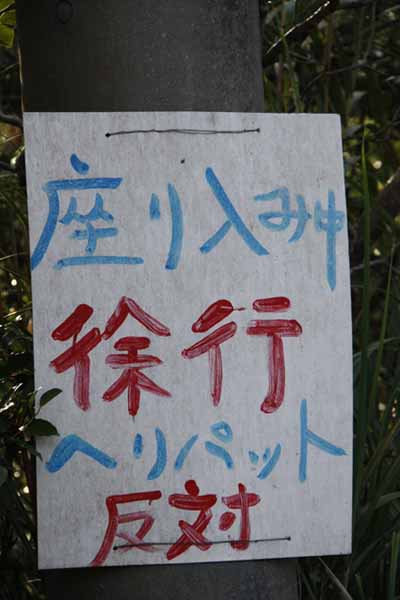 座り入み中
徐行
ヘリパット
反対